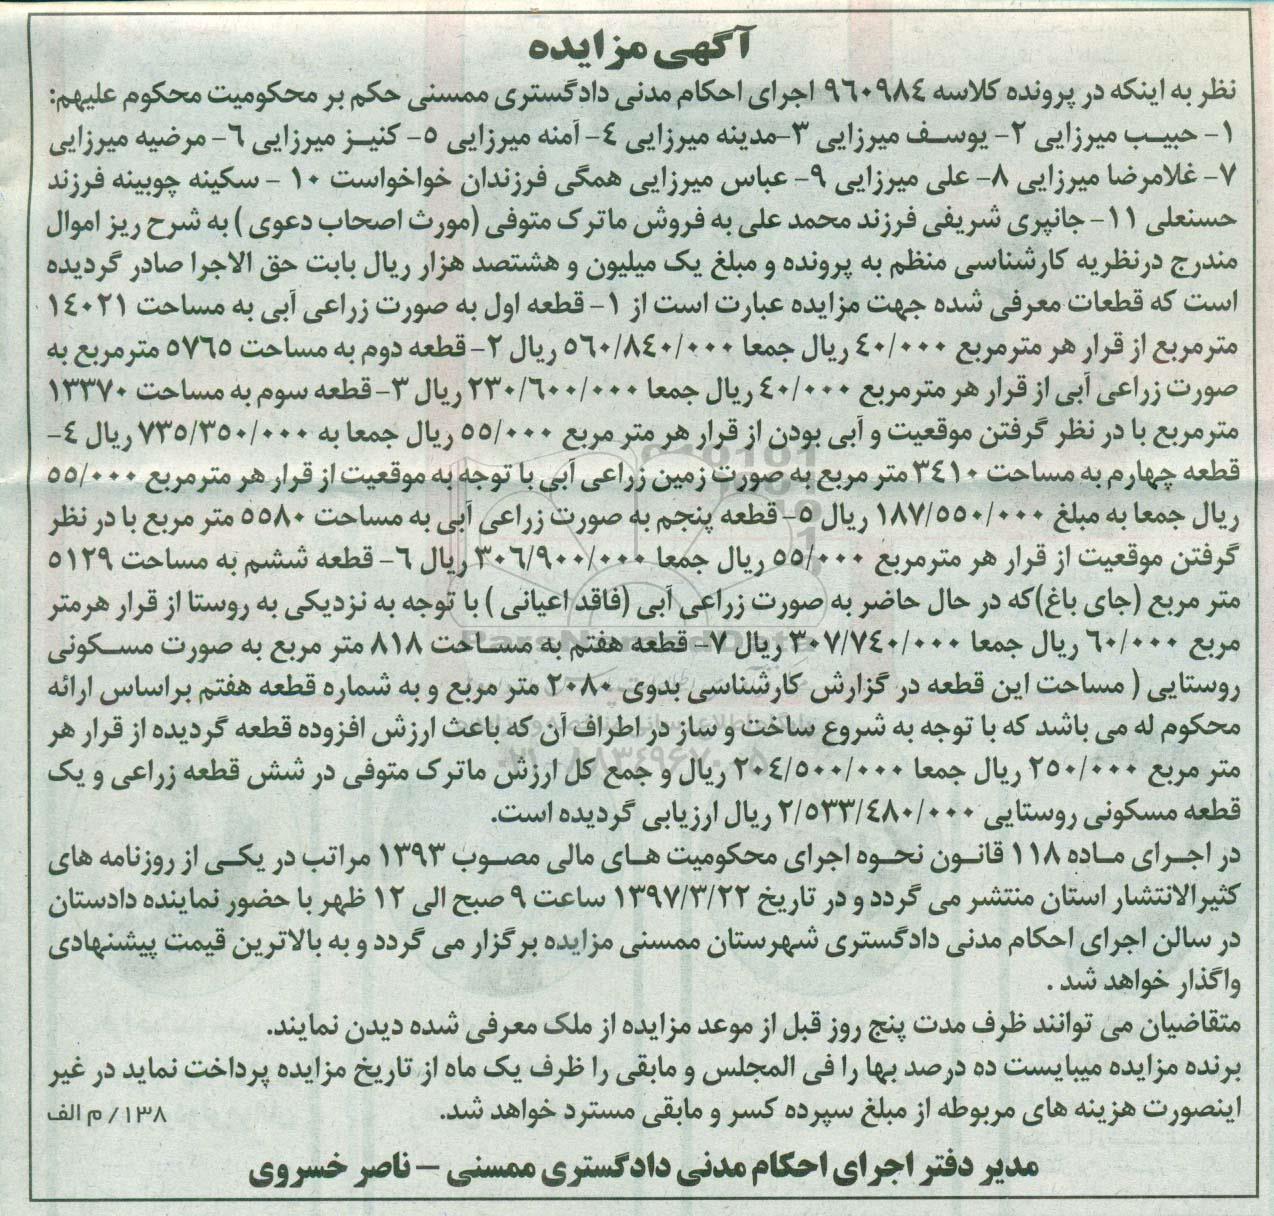 آگهی مزایده
نظر به اینکه در پرونده کلاسه ۹۶۰۹۸٤ اجرای احکام مدنی دادگستری ممسنی حکم بر محکومیت محکوم علیهم:
۱- حبیب میرزایی ۲- یوسف میرزایی ۳-مدینه میرزایی ٤- آمنه میرزایی ٥- کنیز میرزایی ٦- مرضیه میرزایی
۷- غلامرضا میرزایی ۸- علی میرزایی ۹- عباس میرزایی همگی فرزندان خواخواست ۱۰ - سکینه چوبینه فرزند
حسنعلی ۱۱- جانپری شریفی فرزند محمد علی به فروش ماترک متوفی (مورث اصحاب دعوی ) به شرح ریز اموال
مندرج درنظریه کارشناسی منظم به پرونده و مبلغ یک میلیون و هشتصد هزار ریال بابت حق الاجرا صادر گردیده
است که قطعات معرفی شده جهت مزایده عبارت است از ۱- قطعه اول به صورت زراعی آبی به مساحت ۱٤۰۲۱
مترمربع از قرار هر مترمربع ٤۰/۰۰۰ ریال جمعا ٥٦۰/۸٤۰/۰۰۰ ریال ۲- قطعه دوم به مساحت ٥۷٦٥ مترمربع به
صورت زراعی آبی از قرار هر مترمربع ٤۰/۰۰۰ ریال جمعا ۲۳۰/٦۰۰/۰۰۰ ریال ۳- قطعه سوم به مساحت ۱۳۳۷۰
مترمربع با در نظر گرفتن موقعیت و آبی بودن از قرار هر متر مربع ٥٥/۰۰۰ ریال جمعا به ۷۳٥/۳٥۰/۰۰۰ ریال ٤-
قطعه چهارم به مساحت ۳٤۱۰ متر مربع به صورت زمین زراعی آبی با توجه به موقعیت از قرار هر مترمربع ٥٥/۰۰۰
ریال جمعا به مبلغ ۱۸۷/٥٥۰/۰۰۰ ریال ٥- قطعه پنجم به صورت زراعی آبی به مساحت ٥٥۸۰ متر مربع با در نظر
گرفتن موقعیت از قرار هر مترمربع ٥٥/۰۰۰ ریال جمعا ۳۰٦/۹۰۰/۰۰۰ ریال ٦- قطعه ششم به مساحت ٥۱۲۹
متر مربع (جای باغ)که در حال حاضر به صورت زراعی آبی (فاقد اعیانی ) با توجه به نزدیکی به روستا از قرار هرمتر
مربع ٦۰/۰۰۰ ریال جمعا ۳۰۷/۷٤۰/۰۰۰ ریال ۷- قطعه هفتم به مساحت ۸۱۸ متر مربع به صورت مسکونی
روستایی ( مساحت این قطعه در گزارش کارشناسی بدوی ۲۰۸۰ متر مربع و به شماره قطعه هفتم براساس ارائه
محکوم له می باشد که با توجه به شروع ساخت و ساز در اطراف آن که باعث ارزش افزوده قطعه گردیده از قرار هر
متر مربع ۲٥۰/۰۰۰ ریال جمعا ۲۰٤/٥۰۰/۰۰۰ ریال و جمع کل ارزش ماترک متوفی در شش قطعه زراعی و یک
قطعه مسکونی روستایی ۲/٥۳۳/٤۸۰/۰۰۰ ریال ارزیابی گردیده است.
در اجرای ماده ۱۱۸ قانون نحوه اجرای محکومیت های مالی مصوب ۱۳۹۳ مراتب در یکی از روزنامه های
کثیرالانتشار استان منتشر می گردد و در تاریخ ۱۳۹۷/۳/۲۲ ساعت ۹ صبح الی ۱۲ ظهر با حضور نماینده دادستان
در سالن اجرای احکام مدنی دادگستری شهرستان ممسنی مزایده برگزار می گردد و به بالاترین قیمت پیشنهادی
واگذار خواهد شد .
متقاضیان می توانند ظرف مدت پنج روز قبل از موعد مزایده از ملک معرفی شده دیدن نمایند.
برنده مزایده میبایست ده درصد بها را فی المجلس و مابقی را ظرف یک ماه از تاریخ مزایده پرداخت نماید در غیر
اینصورت هزینه های مربوطه از مبلغ سپرده کسر و مابقی مسترد خواهد شد. ۱۳۸/ م الف
مدیر دفتر اجرای احکام مدنی دادگستری ممسنی – ناصر خسروی